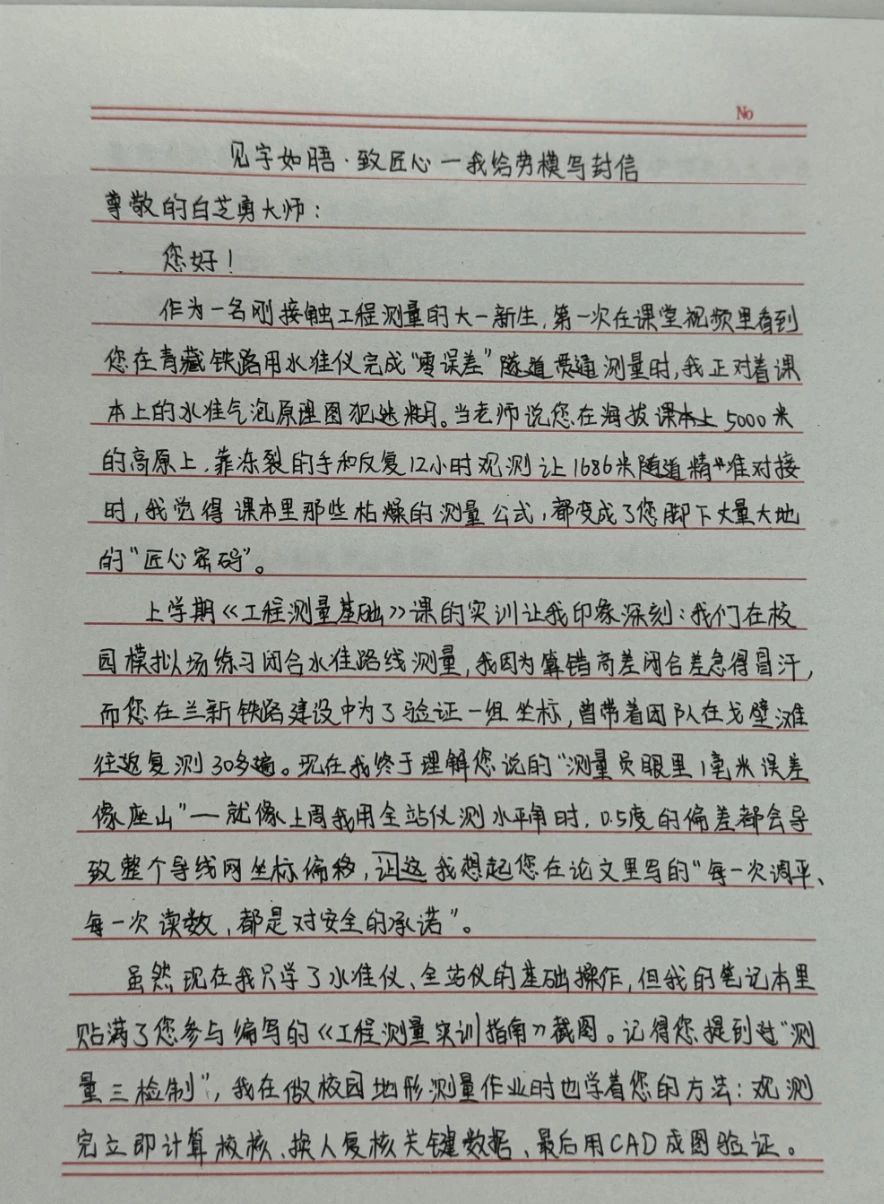 No
见字如晤·致匠心—我给劳模写封信
尊敬的白芝勇大师：
您好！
作为一名刚接触工程测量的大一新生，第一次在课堂视频里看到
您在青藏铁路用水准仪完成“零误差”隧道贯通测量时，我正对着课
本上的水准气泡原理图犯迷糊。当老师说您在海拔课本上5000米
的高原上，靠冻裂的手和反复12小时观测让1686米隧道精准对接
时，我觉得课本里那些枯燥的测量公式，都变成了您脚下丈量大地
的“匠心密码”。
上学期《工程测量基础》课的实训让我印象深刻：我们在校
园模拟场练习闭合水准路线测量，我因为算错高差闭合差急得冒汗，
而您在兰新铁路建设中为了验证一组坐标，曾带着团队在戈壁滩
往返复测30多遍。现在我终于理解您说的“测量员眼里1毫米误差
像座山”—就像上周我用全站仪测水平角时，0.5度的偏差都会导
致整个导线网坐标偏移，让这我想起您在论文里写的“每一次调平、
每一次读数，都是对安全的承诺”。
虽然现在我只学了水准仪、全站仪的基础操作，但我的笔记本里
贴满了您参与编写的《工程测量实训指南》截图。记得您提到过“测
量三检制”，我在做校园地形测量作业时也学着您的方法：观测
完立即计算校核、换人复核关键数据、最后用CAD成图验证。